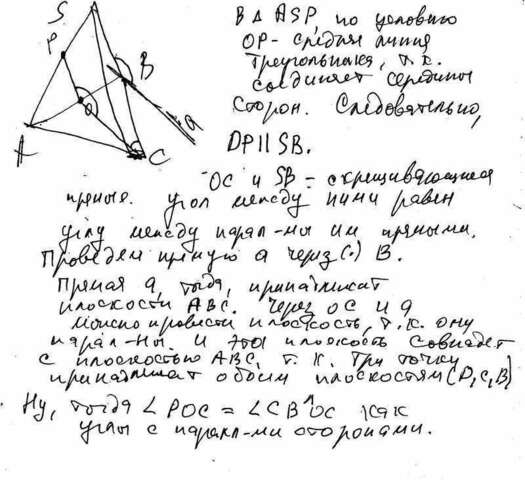 S
P
B
O
A
C
a
В Δ ASP, по условию
OP - средняя линия
треугольника, т.к.
соединяет середины
сторон. Следовательно,
OP || SB.
OC и SB - скрещивающиеся
прямые. Угол между ними равен
углу между парал-мы им прямыми.
Проведем прямую a через (·) B.
Прямая a, тогда, принадлежит
плоскости ABC. Через OC и a
можно провести плоскость, т.к. они
парал-ны. и эта плоскость совпадет
с плоскостью ABC, т.к. три точки
принадлежат обоим плоскостям (O, C, B)
Ну, тогда ∠ POC = как
углы с паралл-ми сторонами.